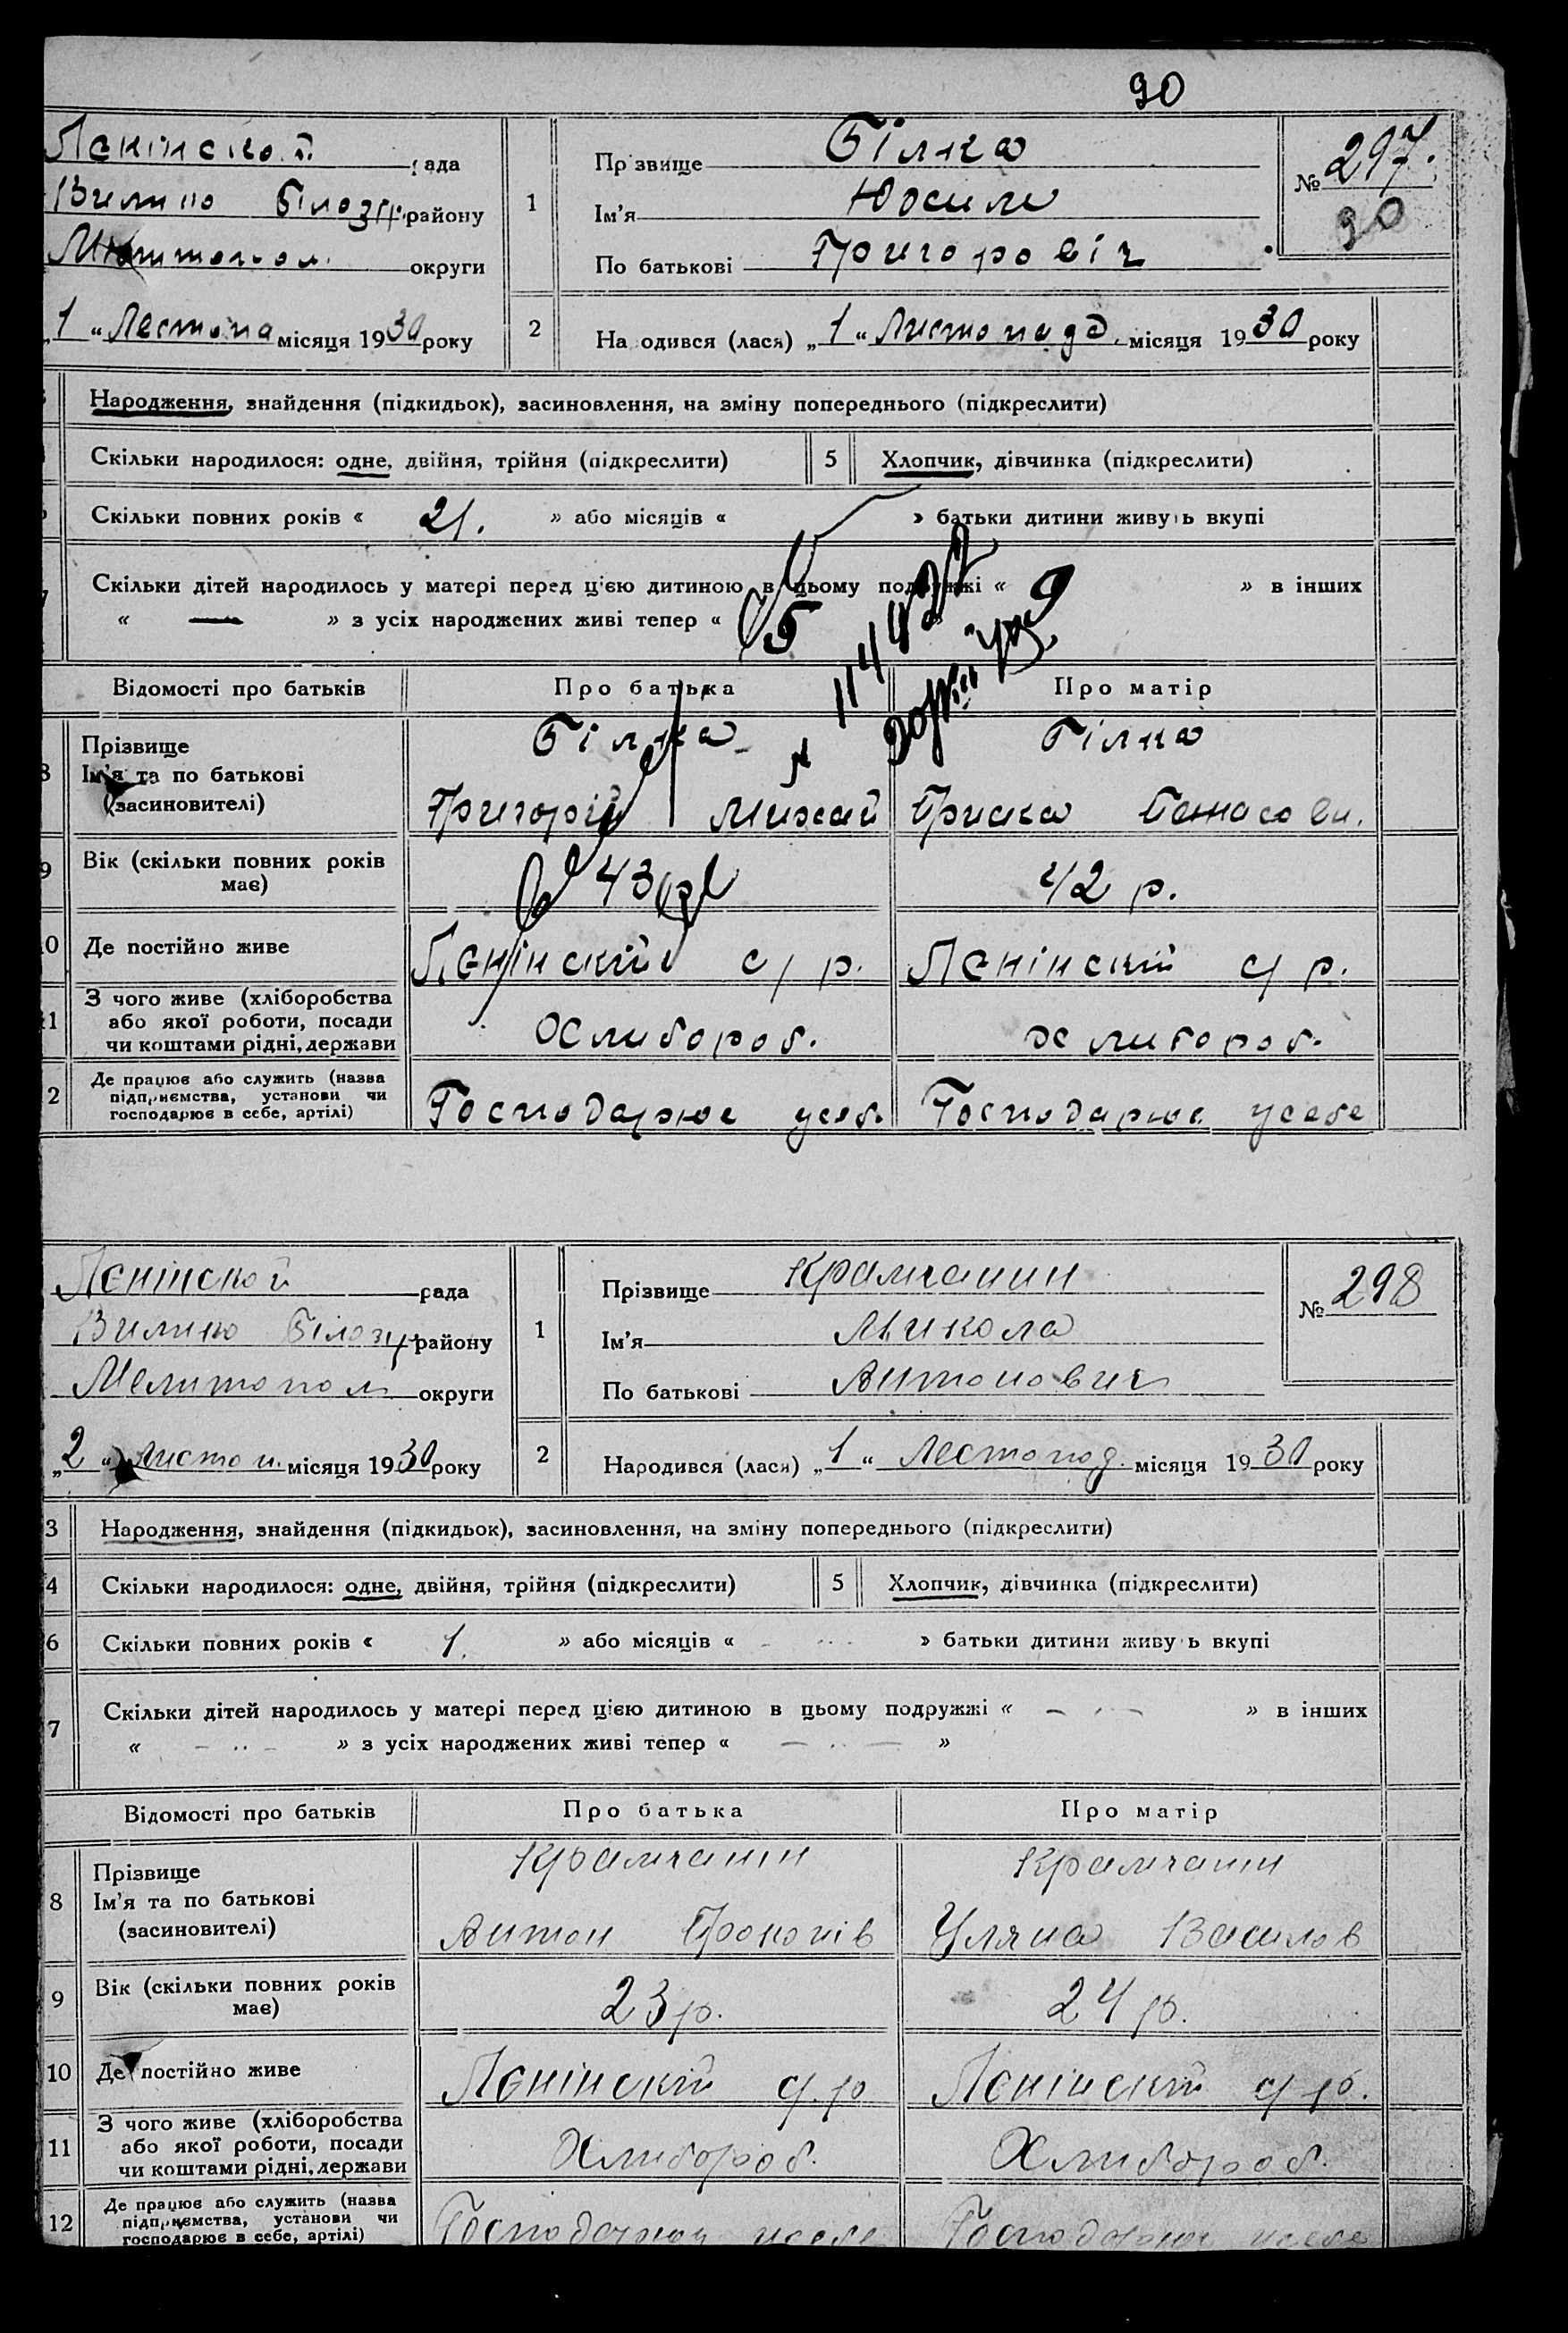 90
Лєнінской рада
Вилико Білозір. району
округи
„1“ Лестопа місяця 1930 року
1
Прізвище Білка
Ім’я Юхим
По батькові Григоровіч
№ 297.
90
2
На одився (лася) „1“ Листопада. місяця 1930 року
Народження, знайдення (підкидьок), засиновлення, на зміну попереднього (підкреслити)
Скільки народилося: одне, двійня, трійня (підкреслити)
5 Хлопчик, дівчинка (підкреслити)
Скільки повних років « 21. » або місяців « » батьки дитини живуь вкупі
Скільки дітей народилось у матері перед цією дитиною в цьому подружжі « » в інших
« — » з усіх народжених живі тепер « 5
Відомості про батьків Про батька Про матір
8 Прізвище
Ім’я та по батькові
(засиновителі)
Білка Білка
Григорій Михай Приска
9 Вік (скільки повних років
має)
43 р 42 р.
0 Де постійно живе Лєнінский с/р. Лєнінский с/р.
1 З чого живе (хліборобства
або якої роботи, посади
чи коштами рідні, держави
Хлибороб. Хлибороб.
2 Де працює або служить (назва
підприємства, установи чи
господарює в себе, артілі)
Господарює усеб. Господарює усебе
Лєнінской рада
Вилико Білозір району
Мелитопол округи
„2“ Листоп. місяця 1930 року
1
Прізвище Крамчанин
Ім’я Микола
По батькові Антонович
№ 298
2
Народився (лася) „1“ Лестопод. місяця 1930 року
3 Народження, знайдення (підкидьок), засиновлення, на зміну попереднього (підкреслити)
4 Скільки народилося: одне, двійня, трійня (підкреслити)
5 Хлопчик, дівчинка (підкреслити)
6 Скільки повних років « 1. » або місяців « - » батьки дитини живуь вкупі
7 Скільки дітей народилось у матері перед цією дитиною в цьому подружжі « — » в інших
« — » з усіх народжених живі тепер « — »
Відомості про батьків Про батька Про матір
8 Прізвище
Ім’я та по батькові
(засиновителі)
Крамчанин Крамчанин
Антон Прокопів Уляна Василов
9 Вік (скільки повних років
має)
23 р. 24 р.
10 Де постійно живе Лєнінский с/р Лєнінский с/р.
11 З чого живе (хліборобства
або якої роботи, посади
чи коштами рідні, держави
Хлибороб. Хлибороб.
12 Де працює або служить (назва
підприємства, установи чи
господарює в себе, артілі)
Господарює усебе Господарює усебе